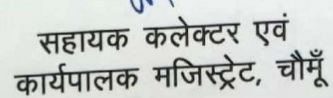 सहायक कलेक्टर एवं
कार्यपालक मजिस्ट्रेट, चौमूँ